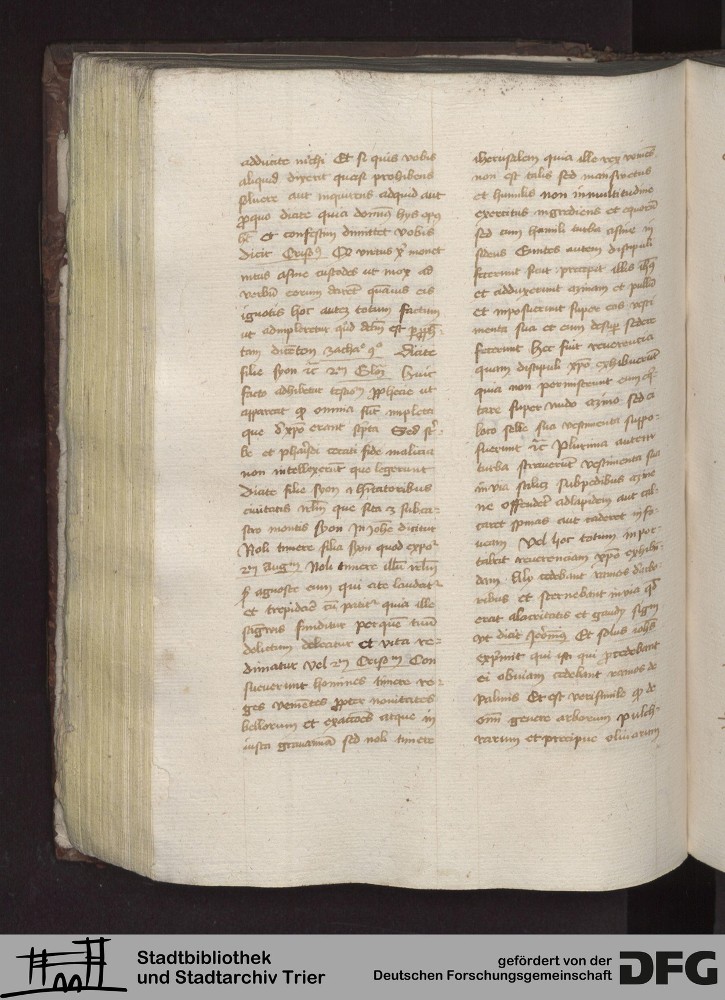 adducite michi Et si quis vobis
aliquid dixerit quasi prohibens
soluere aut inquirens ad quid aut
pro quo dicite quia domin9 hys op9
h3 Et confestim dimittet vobis
dicit Cris9 monet
intus asine custodes ut mox ad
verbu eorum daret quauis eis
ignotis hoc autez totum factum
ut adimpleretur qd dcm est per
tam dicentem zacha Dicite
filie syon Huic
facto adhibetur ut
appareat omnia sut impleta
que xpo erant Sed
be et pharisei cecati fide malicia
non intellexerut que legerunt
Dicite filie syon hitatoribus
ciuitatis que sita subca
stro montis syon In Johe dicitur
Noli timere filia syon quod
Aug Noli timere illu
s agnosce eum qui a te laudat
et trepidare cu patit quia ille
sangwis funditur per que tuu
delictum deleatur et vita re
dimatur Vel Cris Con
sueuerunt homines timere re
ges venietes propter nouitates
bellorum et exactoes atque in
iusta grauamia sed noli timere
iherusalem quia ille rex veniens
non est talis sed mansuetus
et humilis non in multitudine
exercitus ingrediens et equoru
sed cum humili turba asine in
sidens Euntes autem discipuli
fecerunt sicut precepit illis ihs
et adduxerunt asinam et pullu
et imposuerunt super eos vesti
menta sua et eum desup sedere
fecerunt Hec fuit reuerencia
quam discipuli xpo exhibuerut
quia non permiserunt eum eq
tare super nudo asino sed a
loco selle sua vestimenta suppo
suerunt Plurima autem
turba strauerut vestimenta sua
in via scilicz sub pedibus asine
ne offenderet ad lapidem aut cal
caret spinas aut caderet in fo
ueam Vel hoc totum inpor
tabat reuerenciam xpo exhiben
dam Aly cedebant ramos d arbo
ribus et sternebant in via qd
erat alacritatis et gaudy signu
vt dicit Jeronim9 Et solus iohes
exprimit qui isti qui precedebant
ei obuiam cedebant ramos de
palmis Et est verisimile de
omni genere arborum pulch
rarum et precipue oliuarum
Stadtbibliothek
und Stadtarchiv Trier
gefördert von der
Deutschen Forschungsgemeinschaft
DFG